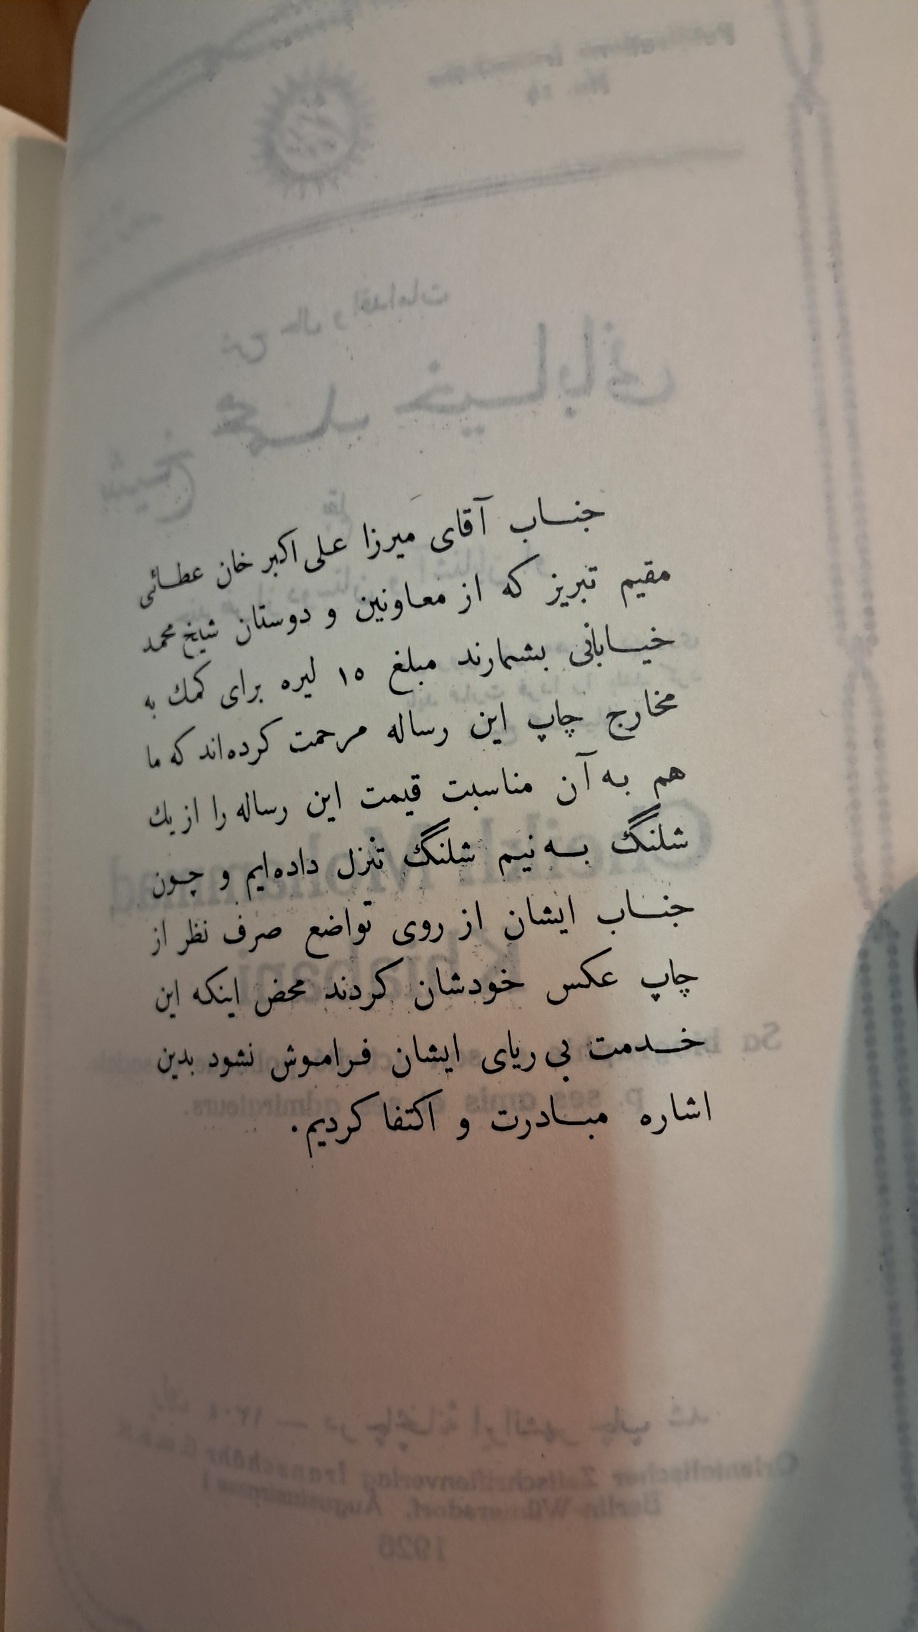 جناب آقای میرزا علی اکبر خان عطائی
مقیم تبریز که از معاونین و دوستان شیخ محمد
خیابانی بشمارند مبلغ ۱۵ لیره برای کمک به
مخارج چاپ این رساله مرحمت کرده‌اند که ما
هم به آن مناسبت قیمت این رساله را از یك
شلنگ به نیم شلنگ تنزل داده‌ایم و چون
جناب ایشان از روی تواضع صرف نظر از
چاپ عکس خودشان کردند محض اینکه این
خدمت بی ریای ایشان فراموش نشود بدین
اشاره مبادرت و اکتفا کردیم.